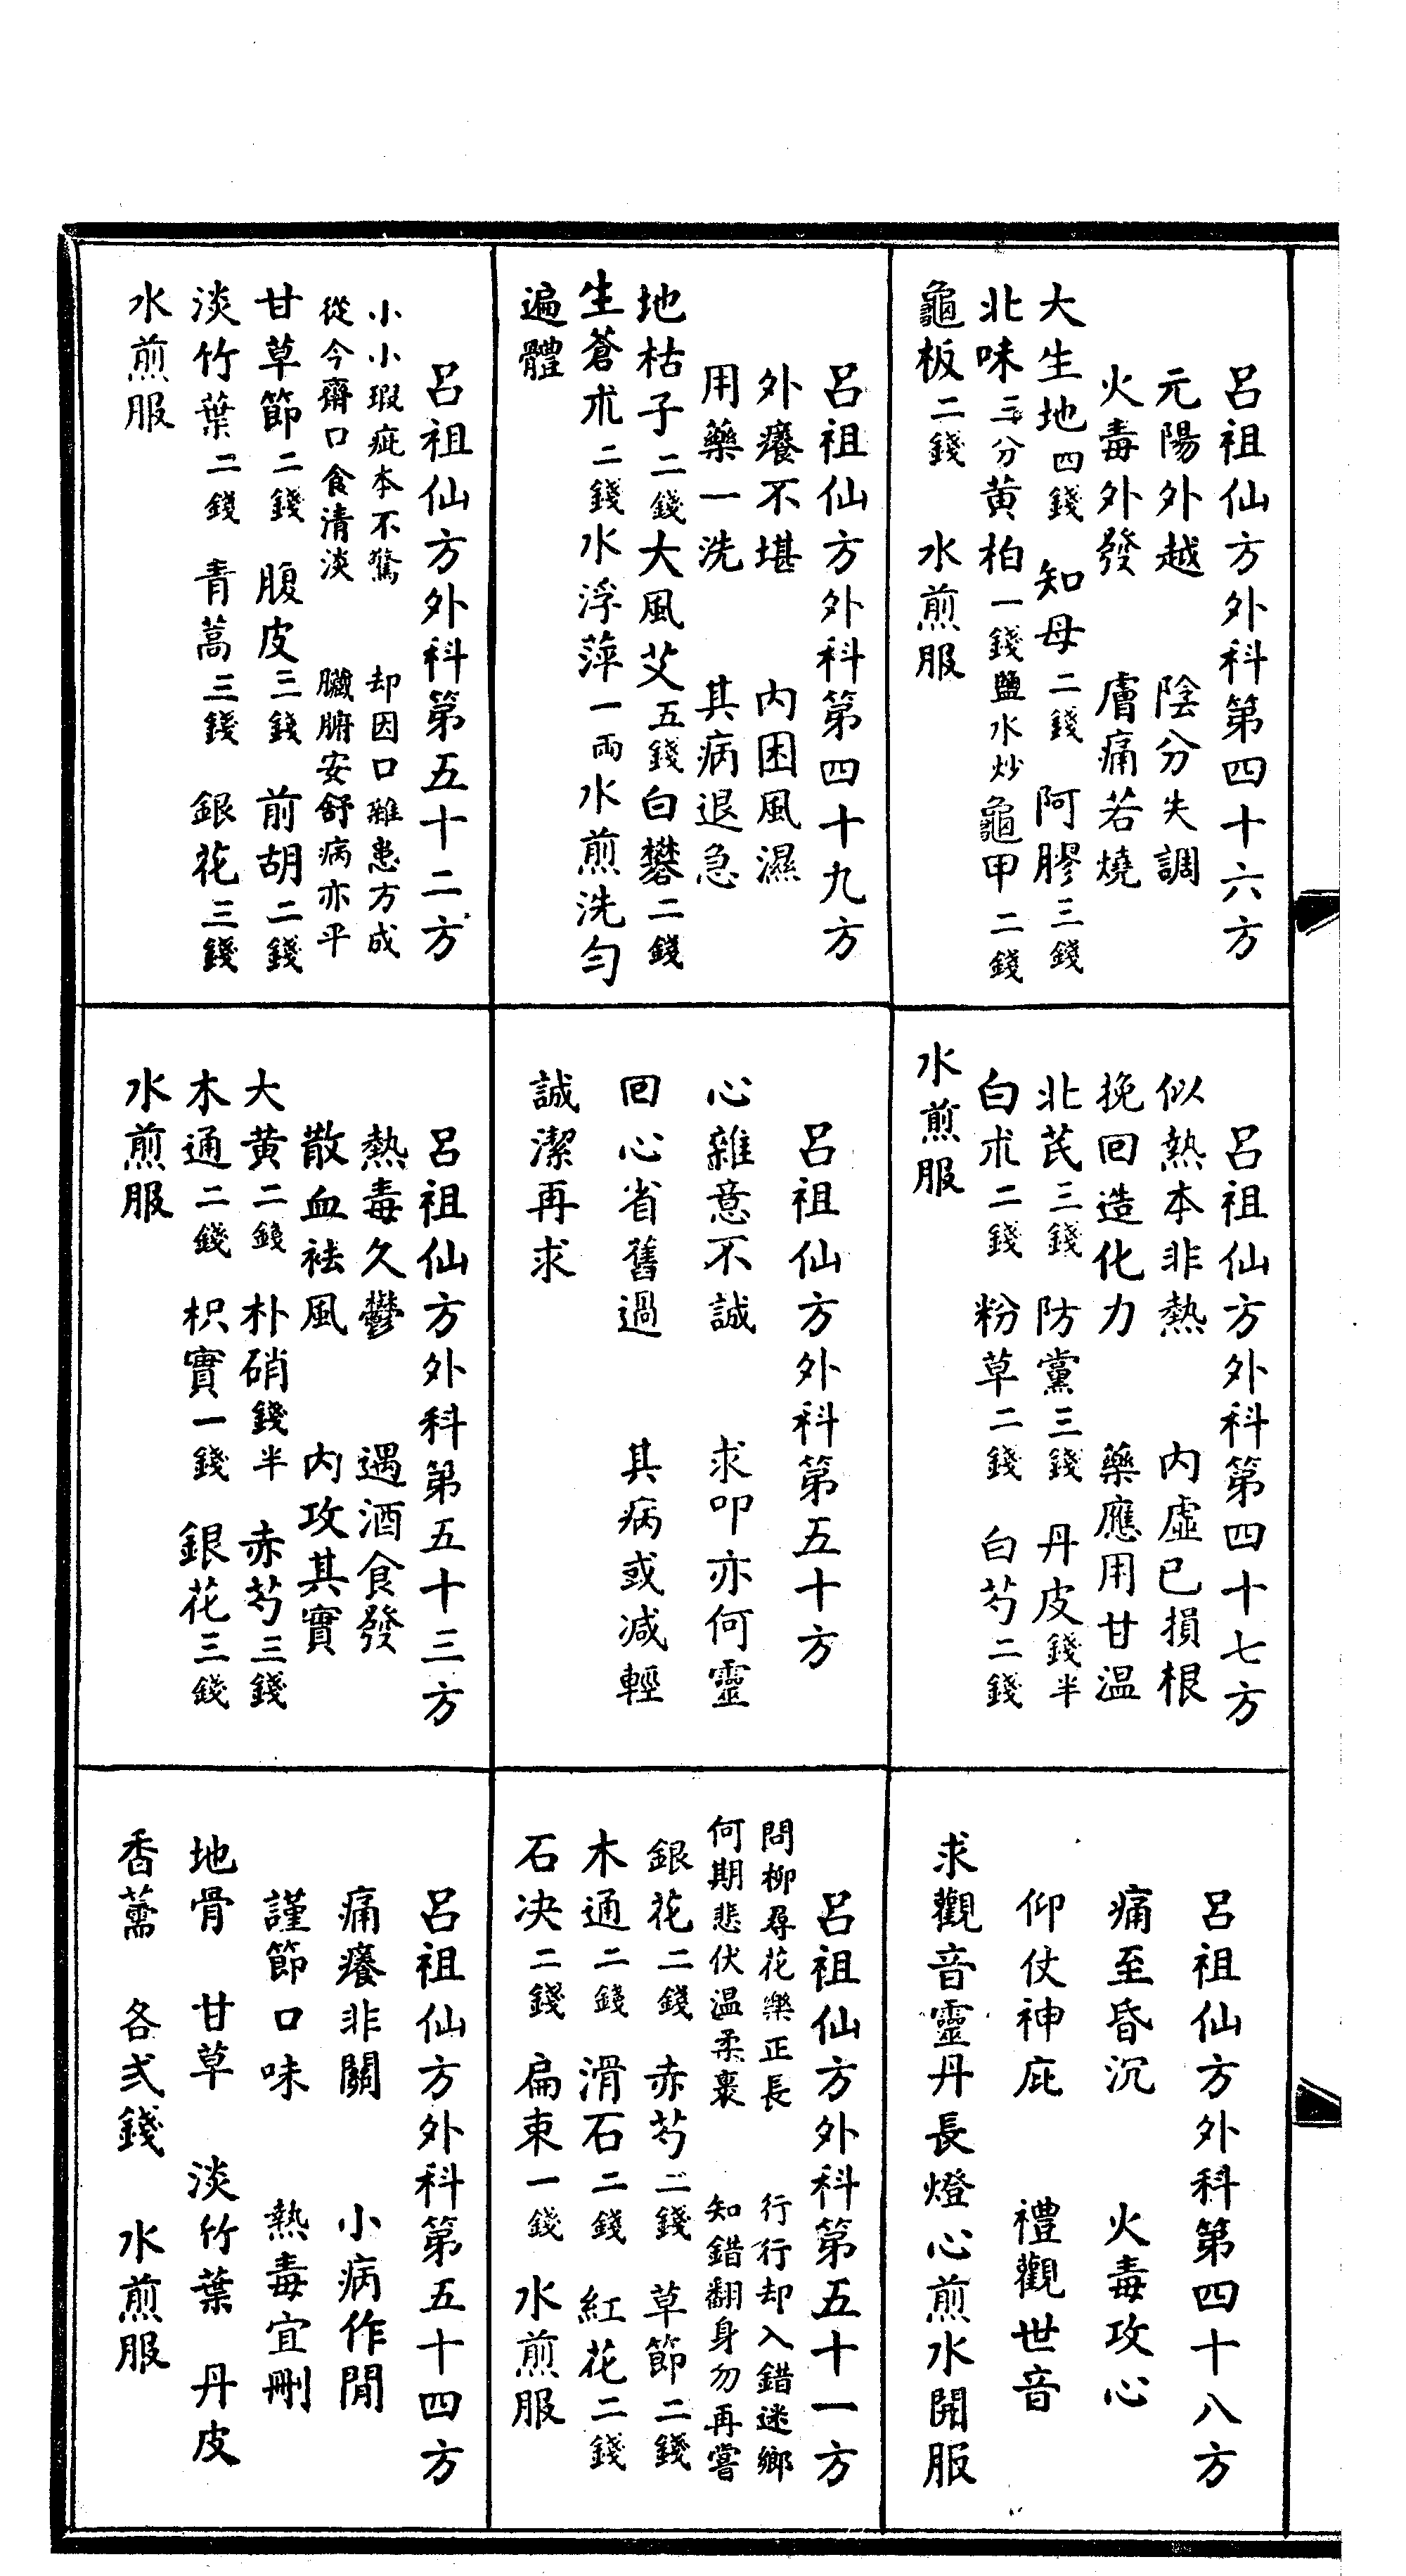 呂祖仙方外科第四十六方
元陽外越　陰分失調
火毒外發　膚痛若燒
大生地四錢　知母二錢　阿膠三錢
北味三分黄柏一錢鹽水炒龜甲二錢
龜板二錢　水煎服
呂祖仙方外科第四十七方
似熱本非熱　内虛已損根
挽回造化力　藥應用甘温
北芪三錢　防黨三錢　丹皮錢半
白朮二錢　粉草二錢　白芍二錢
水煎服
呂祖仙方外科第四十八方
痛至昏沉　火毒攻心
仰仗神庇　禮觀世音
求觀音靈丹長燈心煎水開服
呂祖仙方外科第四十九方
外癢不堪　内困風濕
用藥一洗　其病退急
地枯子二錢大風艾五錢白礬二錢
生蒼朮二錢水浮萍一兩水煎洗勻
遍體
呂祖仙方外科第五十方
心雜意不誠　求叩亦何靈
回心省舊過　其病或減輕
誠潔再求
呂祖仙方外科第五十一方
問柳尋花樂正長　行行却入錯迷鄉
何期悲伏温柔裏　知錯翻身勿再嘗
銀花二錢　赤芍二錢　草節二錢
木通二錢　滑石二錢　紅花二錢
石决二錢　扁柬一錢　水煎服
呂祖仙方外科第五十二方
小小瑕疵本不驚　却因口雜患方成
從今齋口食清淡　臟腑安舒病亦平
甘草節二錢　腹皮三錢　前胡二錢
淡竹葉二錢　青蒿三錢　銀花三錢
水煎服
呂祖仙方外科第五十三方
熱毒久鬱　遇酒食發
散血袪風　内攻其實
大黄二錢　朴硝錢半　赤芍三錢
木通二錢　枳實一錢　銀花三錢
水煎服
呂祖仙方外科第五十四方
痛癢非關　小病作閒
謹節口味　熱毒宜刪
地骨　甘草　淡竹葉　丹皮
香薷　各弍錢　水煎服